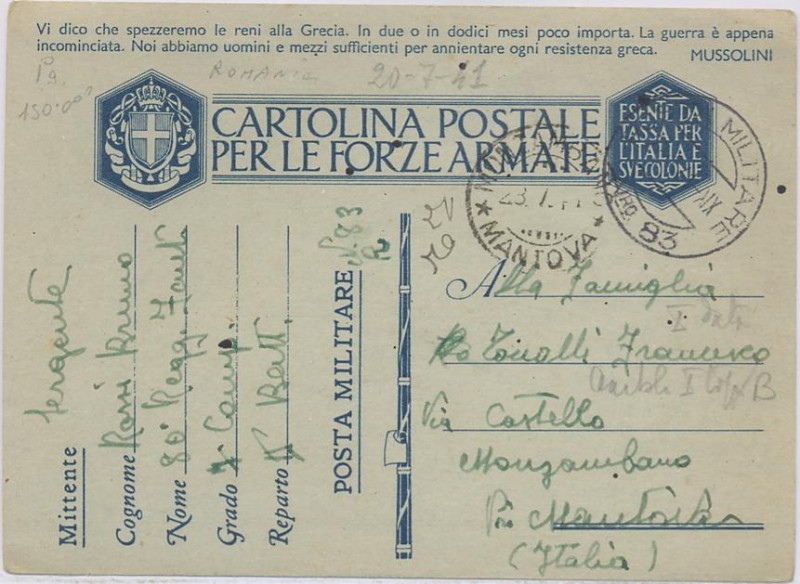 Vi dico che spezzeremo le reni alla Grecia. In due o in dodici mesi poco importa. La guerra è appena
incominciata. Noi abbiamo uomini e mezzi sufficienti per annientare ogni resistenza greca.
MUSSOLINI
Pg.
150.000
ROMANIA 20-7-41
CARTOLINA POSTALE
PER LE FORZE ARMATE
ESENTE DA
TASSA PER
L'ITALIA E
SVE COLONIE
MANTOVA
MILITARE
XIX
83
Mittente Sergente
Cognome Rossi Bruno
Nome 80° Regg. Fant.
Grado Comp.
Reparto Batt.
POSTA MILITARE N. 83
Alla Famiglia
Francesco
Via Castello
Monzambano
Mantova
(Italia)